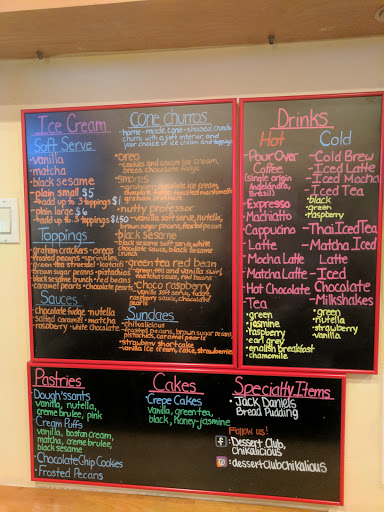 Ice Cream
Soft Serve
-vanilla
-matcha
-black sesame
-plain small $5
-add up to 3 toppings $1
-plain large $6
-add up to 3 toppings $1.50
Toppings
graham crackers · oreos
frosted pecans · sprinkles
brown sugar pecans · pistachios
black sesame brunch · red beans
caramel pearls · chocolate pearls
Sauces
chocolate fudge · nutella
salted caramel · matcha
raspberry · white chocolate
Cone Churros
-home-made, cone-shaped, crunchy
churro with a soft interior and
your choice of ice cream and toppings
·Oreo
cookies and cream ice cream,
oreos, chocolate fudge
·Smores
·nutty professor
-vanilla soft serve, nutella,
brown sugar pecans, frosted pecans
·black sesame
-black sesame soft serve, white
chocolate sauce, black sesame
crunch
·green tea red bean
-green tea and vanilla swirl,
matcha sauce, red beans
·Choco raspberry
-vanilla soft serve, fudge,
raspberry sauce, chocolate
pearls
Sundaes
-chikalicious
-frosted pecans, brown sugar pecans,
pistachios, caramel pearls
-strawberry shortcake
-vanilla ice cream, cake, strawberries
Drinks
Hot
-Pour Over
Coffee
(single origin
Brazil)
-Espresso
-Machiatto
-Cappucino
-Latte
-Mocha Latte
-Matcha Latte
-Hot Chocolate
-Tea
·green
·jasmine
·raspberry
·earl grey
·english breakfast
·chamomile
Cold
-Cold Brew
-Iced Latte
-Iced Mocha
-Iced Tea
·black
·green
·raspberry
-Thai Iced Tea
-Matcha Iced
Latte
-Iced
Chocolate
-Milkshakes
·green
·nutella
·strawberry
·vanilla
Pastries
·Dough'ssants
vanilla, nutella,
creme brulee, pink
·Cream Puffs
vanilla, boston cream,
matcha, creme brulee,
black sesame
·Chocolate Chip Cookies
·Frosted Pecans
Cakes
·Crepe Cakes
vanilla, green tea,
black, honey-jasmine
Specialty Items
·Jack Daniels
Bread Pudding
Follow us!
f : Dessert Club,
chikalicious
: dessertclubchikalicious